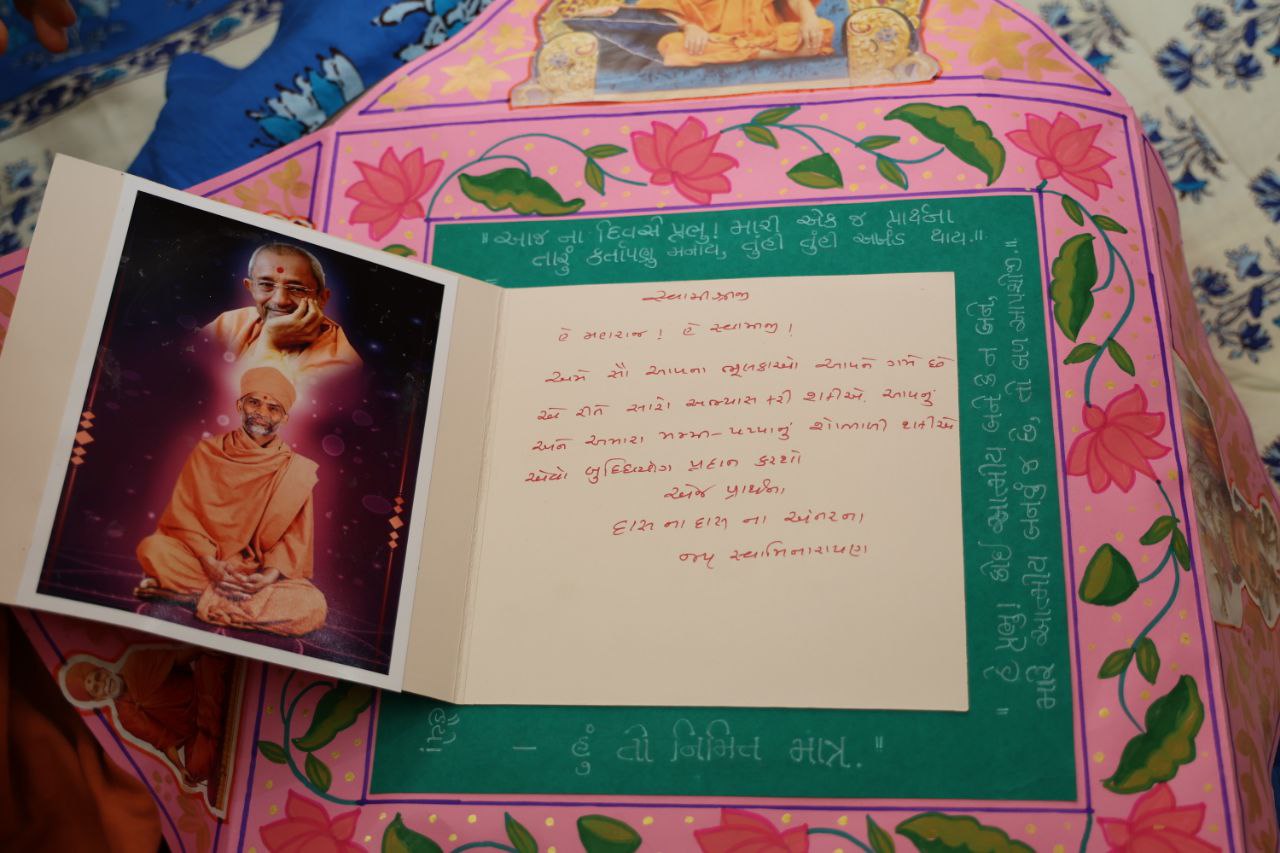 ॥ આજ ના દિવસે પ્રભુ! મારી એક જ પ્રાર્થના
તારું કર્તાપણુ મનાય, તુંહી તુંહી અખંડ થાય.॥
સ્વામીશ્રીજી
હે મહારાજ ! હે સ્વામીજી !
અમે સૌ આપના ભૂલકાઓ આપને ગમે છે
એ રીતે સારો અભ્યાસ કરી શકીએ. આપનું
અને અમારા મમ્મી-પપ્પાનું શોભાળી શકીએ
એવો બુદ્ધિયોગ પ્રદાન કરશો
એજ પ્રાર્થના
દાસ ના દાસ ના અંતરના
જય સ્વામિનારાયણ
॥ હે પ્રભુ! કોઈ આત્મીય બને કે ન બને,
મારે આત્મીય બનવું જ છે, તો બળ આપશોજી॥
- હું તો નિમિત માત્ર. ॥